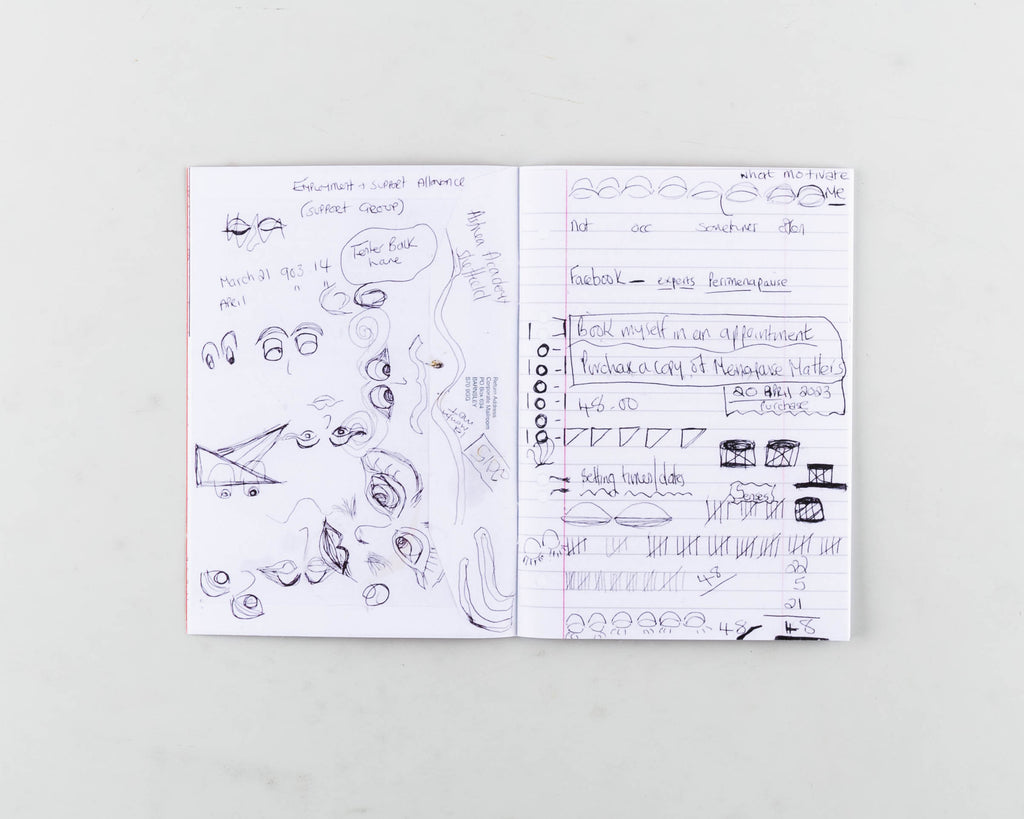 Employment + Support Allowance
(Support Group)
Tenter Balk
Lane
March 21 903 14
April " "
Academy
Sheffield
Return Address
Corporate Mailroom
PO Box 634
BARNSLEY
S70 9GG
What motivate
Me
Not occ sometimes often
Facebook — experts Perimenopause
Book myself in an appointment
Purchase a copy of Menopause Matters
20 April 2023
Purchase
48-00
Setting times/dates
Senses
48
22
5
21
48 48